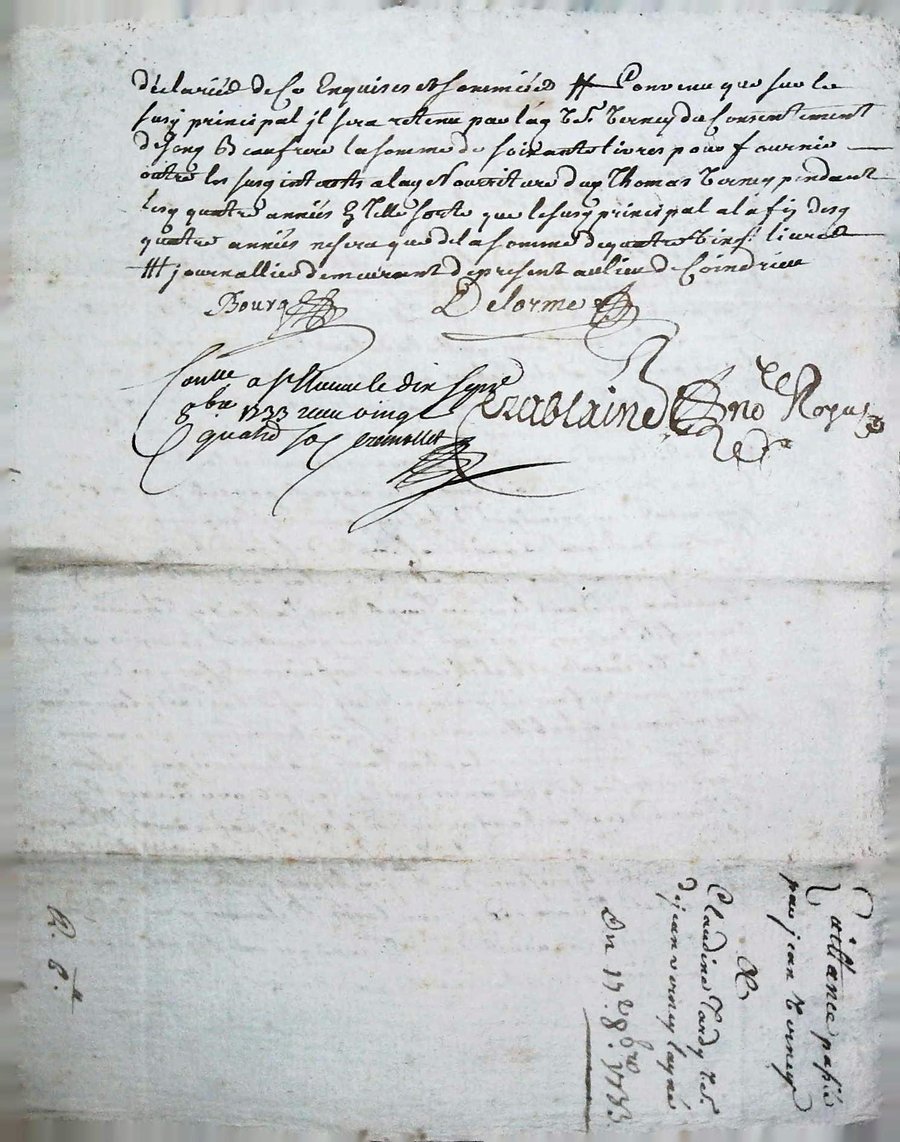 déclarés de ce Enquises et sommées # Convenu que sur le
susq principal jl sera retenu par laq Ve Verney du Consentement
desonq beaufrere la somme de soixante livres pour fournir
outre les susq interests alaq Nourriture duq Thomas Verney pendant
lesq quatre années & telle sorte que lesusq principal a la fin desq
quatre années nesera que de la somme de quatre vingt livres
# journallier demeurant de present au lieu de Coindrieu
Bourg Delorme
Conlle a le dix sept
8bre 1733 receu vingt
quatre sols
Erablaine no Royal
Quittance passée
par jean Verney
A
Claudine Tardy Ve
de jean verney layné
Du 17e 8bre 1733